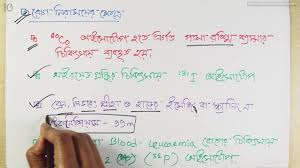 রোগ নিরাময়ের ক্ষেত্রে
⁶⁰Co আইসোটোপ হতে নির্গত গামা রশ্মি ক্যান্সার
চিকিৎসায় ব্যবহৃত হয়।
থাইরয়েড গ্রন্থির চিকিৎসায় ¹³¹I আইসোটোপ
ব্রেন, লিভার, প্লীহা ও হাড়ের ইমেজিং বা স্ক্যানিং এ
টেকনিশিয়াম - 99m
Blood Leukaemia রোগের চিকিৎসায়
(³²P) আইসোটোপ